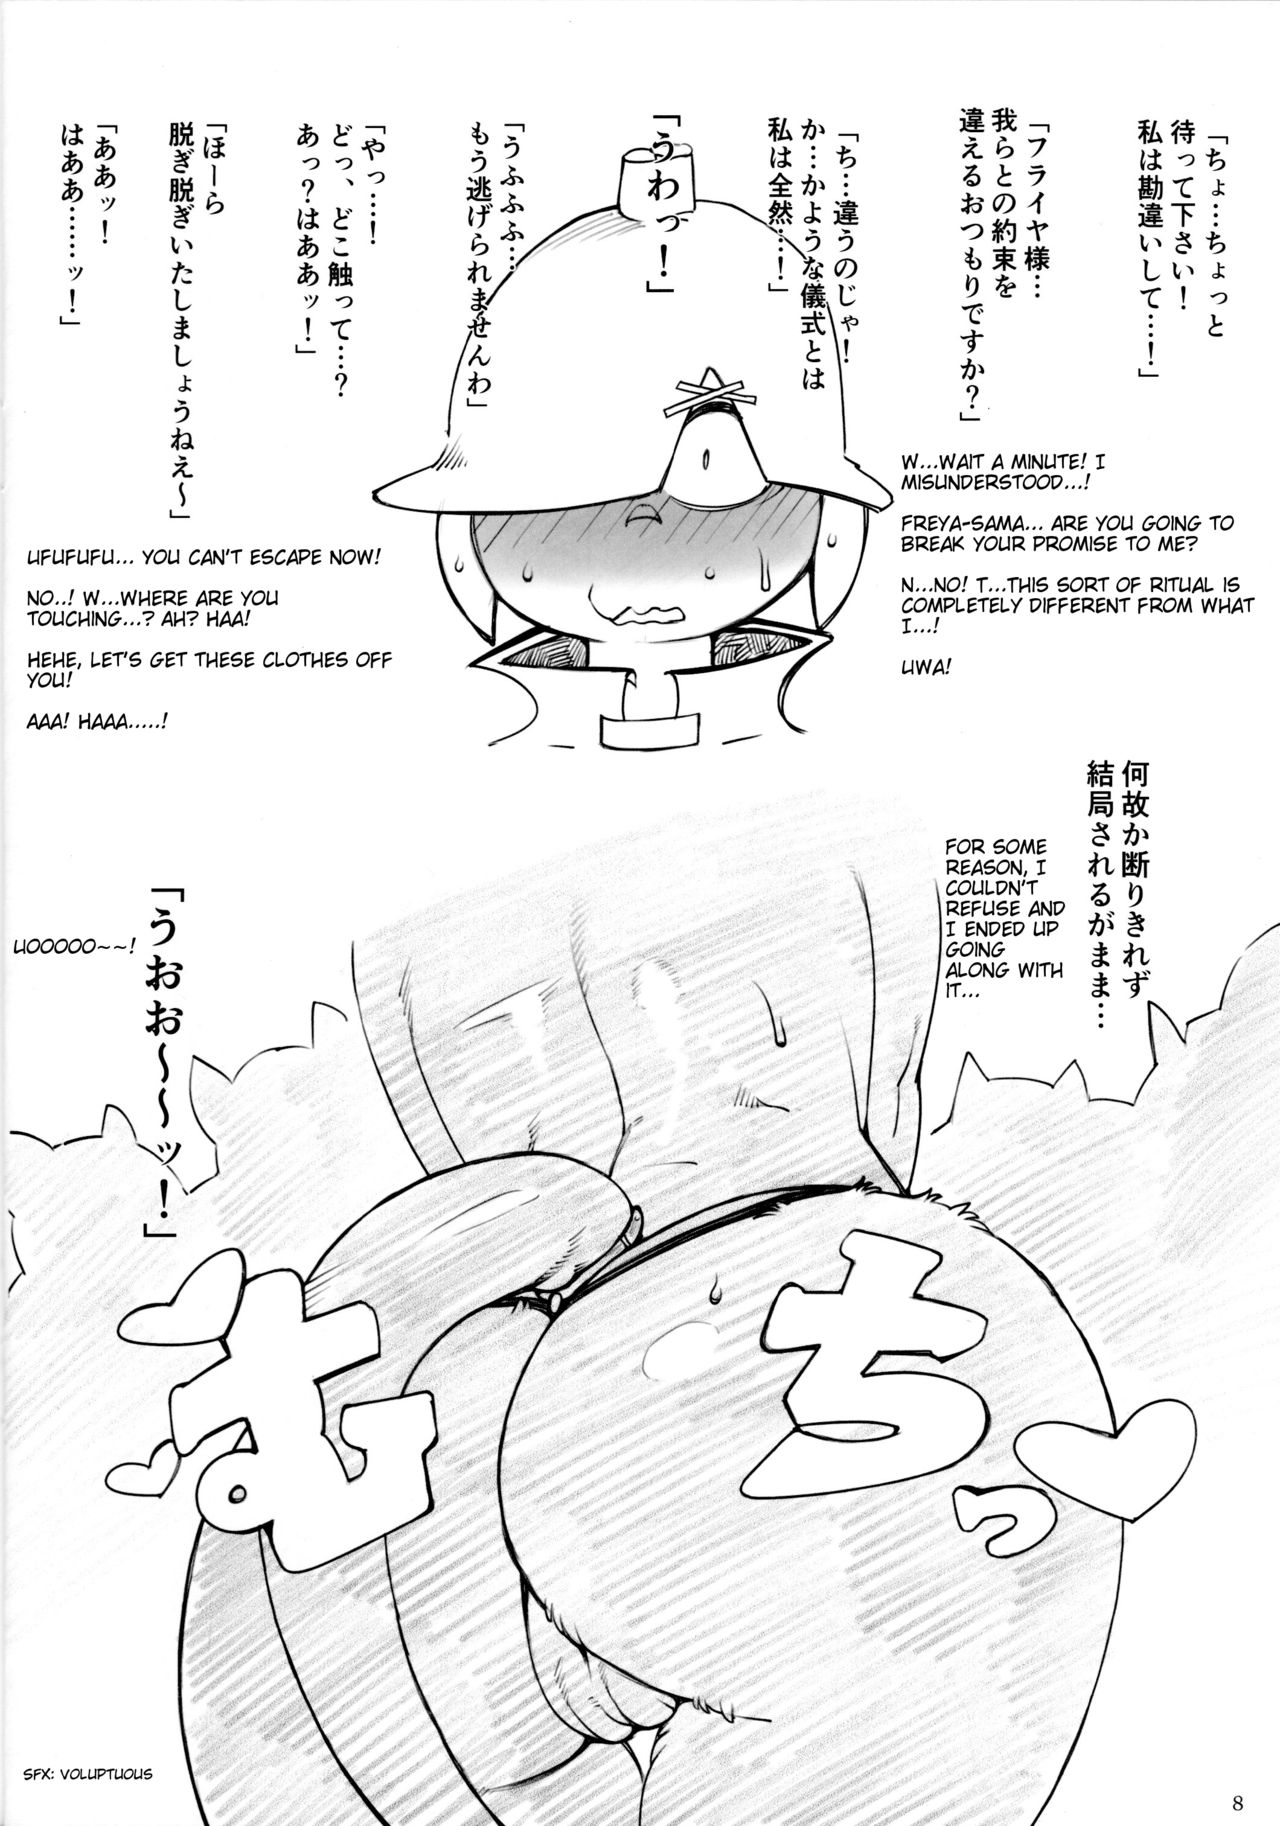 「ちょ…ちょっと
待って下さい！
私は勘違いして…！」
「フライヤ様…
我らとの約束を
違えるおつもりですか？」
「ち…違うのじゃ！
か…かような儀式とは
私は全然…！」
「うわっ！」
「うふふふ…
もう逃げられませんわ」
「やっ…！
どっ、どこ触って…？
あっ？はあぁッ！」
「ほーら
脱ぎ脱ぎいたしましょうねえ～」
「ああッ！
はああ……ッ！」
W...WAIT A MINUTE! I
MISUNDERSTOOD...!
FREYA-SAMA... ARE YOU GOING TO
BREAK YOUR PROMISE TO ME?
N...NO! T...THIS SORT OF RITUAL IS
COMPLETELY DIFFERENT FROM WHAT
I...!
UWA!
UFUFUFU... YOU CAN'T ESCAPE NOW!
NO..! W...WHERE ARE YOU
TOUCHING...? AH? HAA!
HEHE, LET'S GET THESE CLOTHES OFF
YOU!
AAA! HAAA.....!
何故か断りきれず
結局されるがまま…
FOR SOME
REASON, I
COULDN'T
REFUSE AND
I ENDED UP
GOING
ALONG WITH
IT...
「うおお～～ッ！」
UOOOOO~~!
むちっ
SFX: VOLUPTUOUS
8